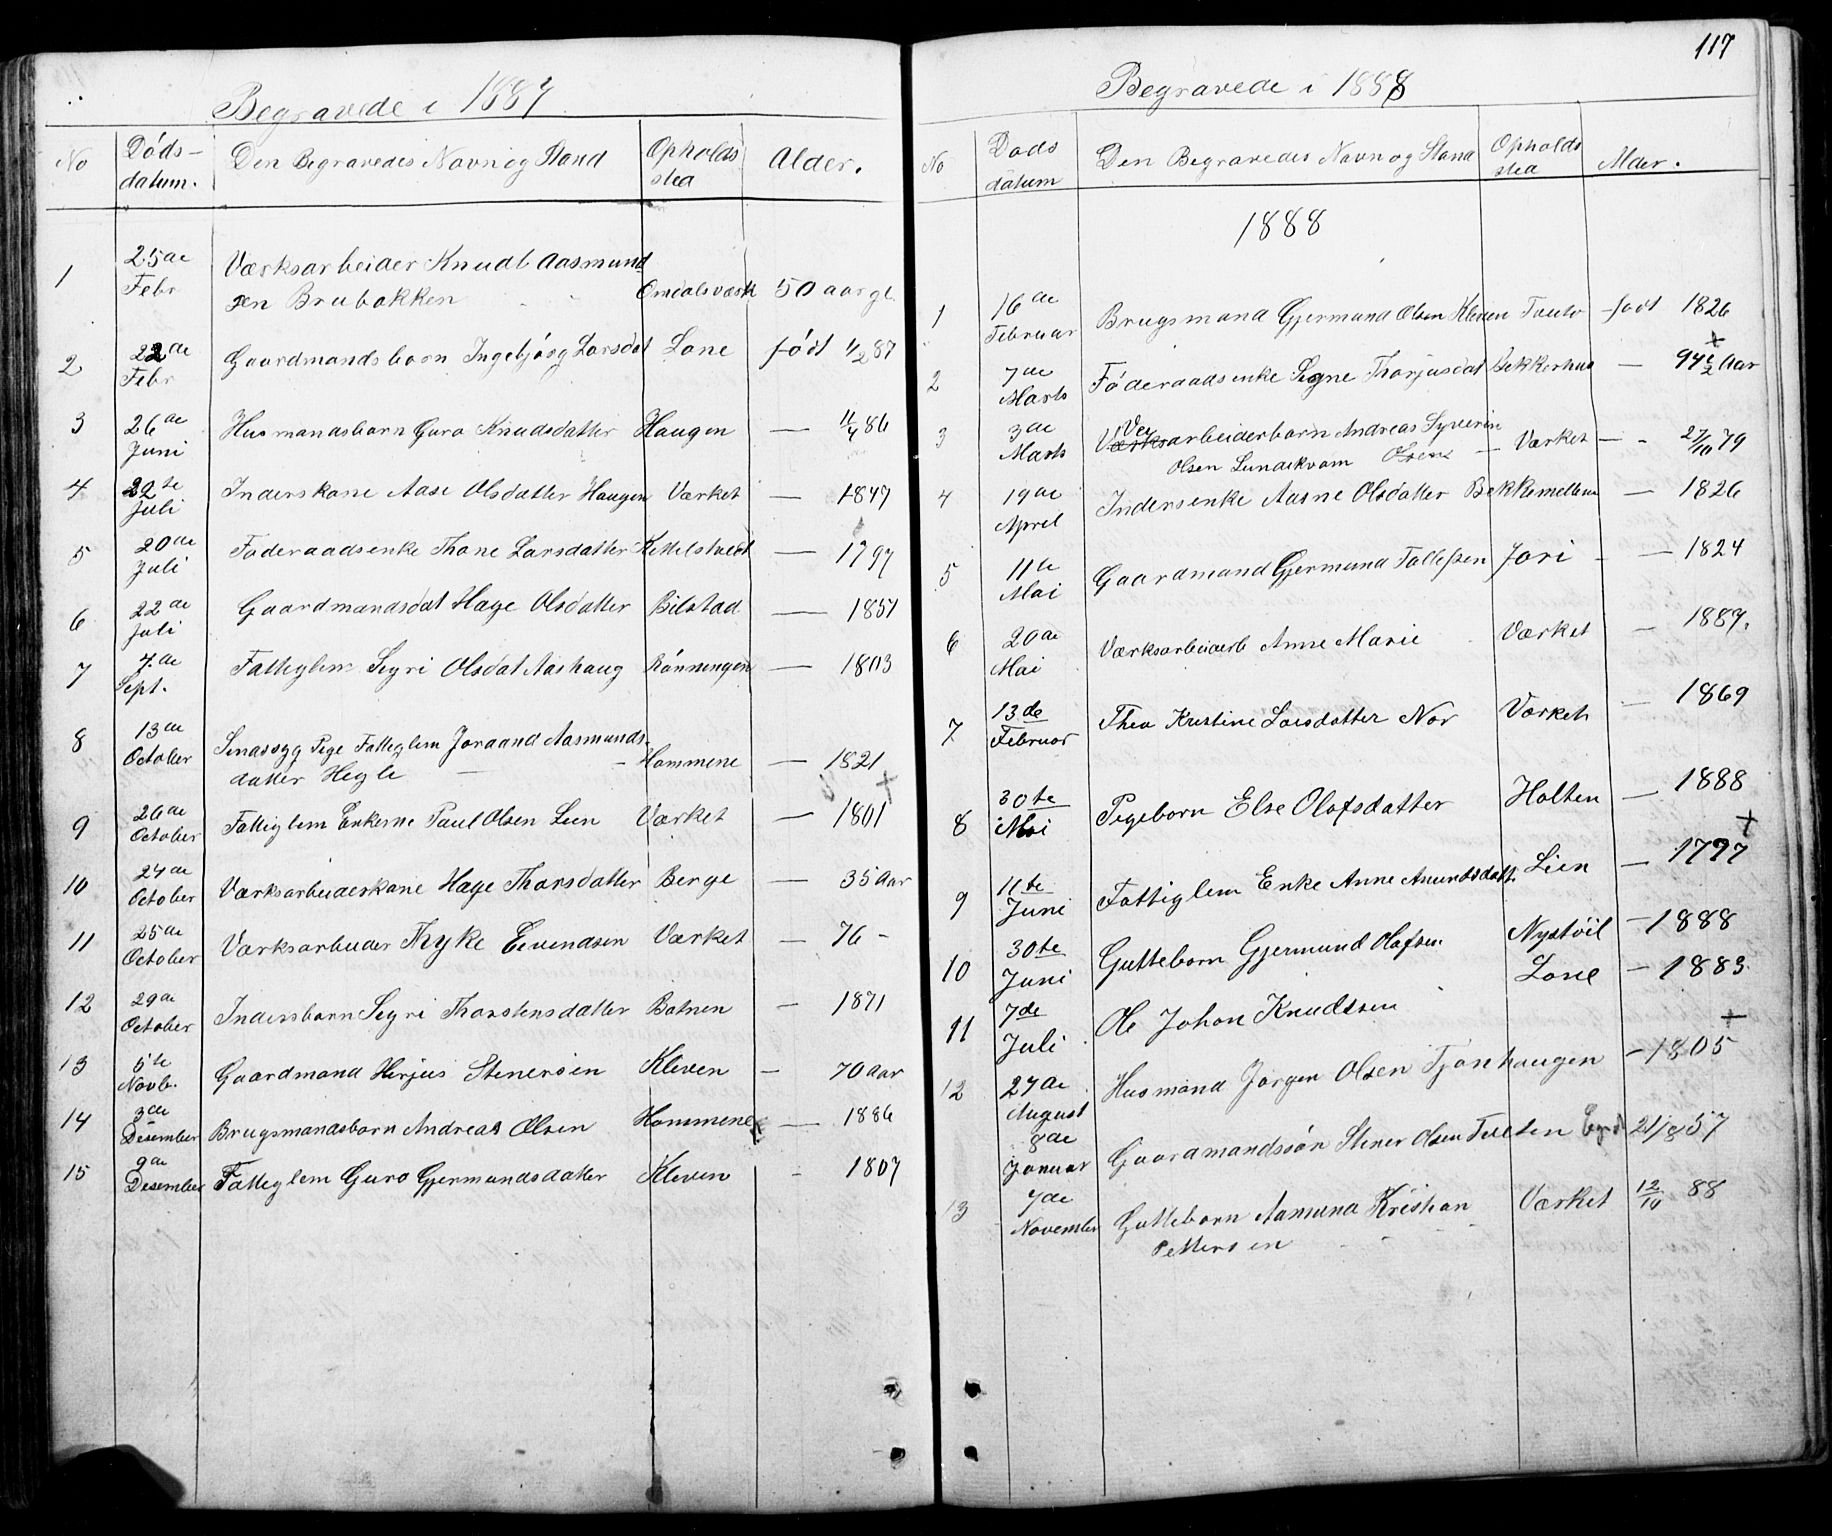 Begravede i 1887
No Döds- datum. Den Begravedes Navn og Stand Opholds sted Alder.
1 25de Febr Værksarbeider Knudt Aasmund
sen Brubakken Omdalsværk 50 aar gl.
2 22de Febr Gaardmandsbarn Ingebjörg Larsdat Lone födt 11/2 87
3 26de Juni Husmandsbarn Guro Knudsdatter Haugen — 11/4 86
4 22te Juli Inderskone Aase Olsdatter Haugen Værket — 1847
5 20de Juli Föderaadsenke Thone Larsdatter Kettelstvedt — 1797
6 22de Juli Gaardmandsdat Hage Olsdatter Bilstad — 1851
7 7de Sept. Fattiglem Segri Olsdat Aashaug Rönningen — 1803
8 13de October Sindssyg Pige Fattiglem Joraand Aasmunds-
datter Hegle Hommene — 1821
9 26de October Fattiglem Enkeme Paul Olsen Lien Værket — 1801
10 24de October Værksarbeiderskone Hage Thorsdatter Berge — 35 Aar
11 25de October Værksarbeider Thyke Eevendsen Værket — 76 –
12 29de October Indersbarn Segri Thorstensdatter Botnen — 1871
13 5te Novb. Gaardmand Herjus Stenersen Kleven — 70 aar
14 3de Desember Brugsmandsbarn Andreas Olsen Hommene — 1886
15 9de Desember Fattiglem Guro Gjermundsdatter Kleven - 1807
117
Begravede i 1888
No Döds datum Den Begravedes Navn og Stand Opholds sted Alder.
1888
1 16de Februar Brugsmand Gjermund Olsen Kleven Tveito — født 1826
2 7de Marts Föderaadsenke Segne Thorjusdat Bekkerhus — 94 1/2 Aar +
3 3de Marts Ver Værksarbeiderbarn Andreas Syverin
Olsen Lundekvam Olsen — Værket — 27/10 79
4 19de April Indersenke Aasne Olsdatter Bekkemellem — 1826
5 11te Mai Gaardmand Gjermund Tallefsen Jori — 1824
6 20de Mai Værksarbeiderb Anne Marie Værket — 1887.
7 13de Februar Thea Kristine Larsdatter Nor Værket — 1869
8 30te Mai Pigeborn Else Olafsdatter Holten — 1888
9 11te Juni Fattiglem Enke Anne Amundsdatt. Lien — 1797 +
10 30te Juni Gutteborn Gjermund Olafsen Nystöil — 1888
11 7de Juli Ole Johan Knudtsen Lone — 1883
12 27de August Husmand Jørgen Olsen Tjønhaugen — 1805 +
8de Januar Gaardmandssön Stener Olsen Tveiten 21/8 57
13 7de November Gutteborn Aamund Kristian
Pettersen Værket 12/10 88